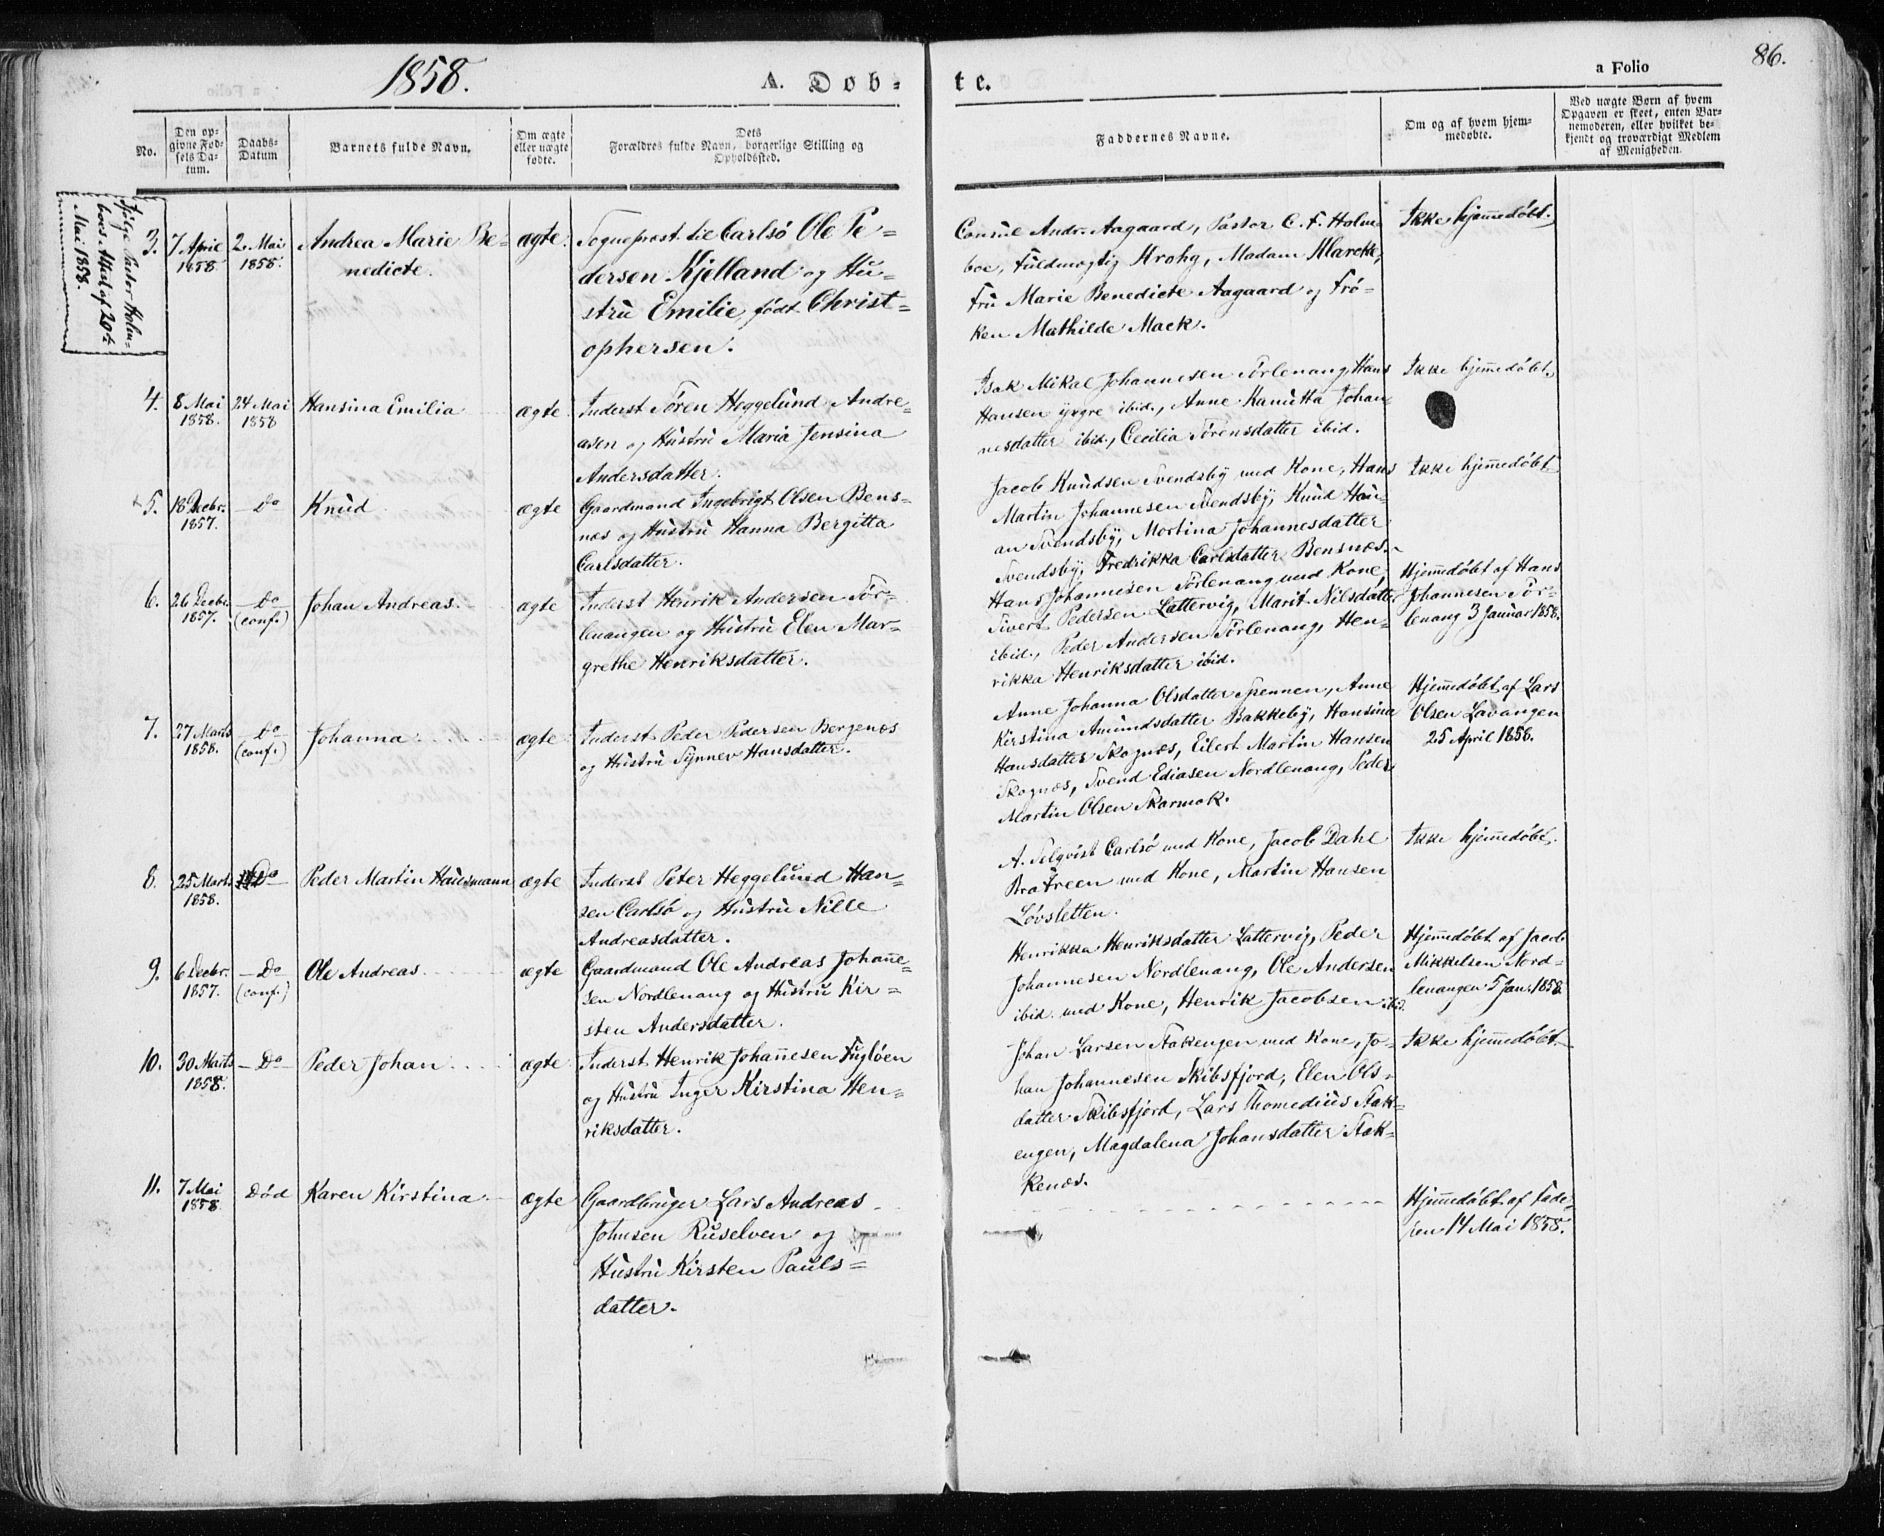 1858.
A. Dob-
te.
a Folio
86.
No.
Den op-
givne Fød-
sels Da-
tum.
Daabs-
Datum
Barnets fulde Navn.
Om ægte
eller uægte
fødte.
Dets
Forældres fulde Navn, borgerlige Stilling og
Opholdssted.
Faddernes Navne.
Om og af hvem hjem-
medøbte.
Ved uægte Børn af hvem
Opgaven er skeet, enten Bar-
nemoderen, eller hvilket be-
kjendt og troværdigt Medlem
af Menigheden.
ifølge Pastor Holm-
boes Attest af 20de
Mai 1858.
3.
7 April
1858
2. Mai
1858.
Andrea Marie Be-
nedicte.
ægte.
Sognepræst til Carlsø Ole Pe-
dersen Kjelland og Hu-
stru Emilie, født Christ-
ophersen.
Consul Andr. Aagaard, Pastor C. F. Holm-
boe, Fuldmægtig Krohg, Madam Marcke,
Fru Marie Benedicte Aagaard og Frø-
ken Mathilde Mack.
Ikke hjemedøbt.
4.
8 Mai
1858.
24 Mai
1858
Hansina Emilia
ægte.
Inderst Søren Heggelund Andre-
asen og Hustru Maria Jensina
Andersdatter.
Isak Mikal Johannesen Sørlenang, Hans
Hansen yngre ibid., Anne Kanutta Johan-
nesdatter ibid., Cecilia Sørensdatter ibid.
Ikke hjemedøbt.
5.
18 Decbr.
1857.
- Do
Knud
ægte
Gaardmand Ingebrigt Olsen Bens-
næs og Hustru Hanna Bergitta
Carlsdatter.
Jacob Knudsen Svendsby med Kone, Hans
Martin Johannesen Svendsby, Knud Han-
an Svendsby, Mortina Johannesdatter
Svendsby, Fredrikka Carlsdatter Bensnæs.
Ikke hjemedøbt
6.
26 Decbr.
1857.
- Do
(conf.)
Johan Andreas.
ægte
Inderst Henrik Andersen Sør-
lenangen og Hustru Elen Mar-
grethe Henriksdatter.
Hans Johannesen Sørlenang med Kone,
Sivert Pedersen Lattervig, Marit Nilsdatter
ibid., Peder Andersen Sørlenang, Hen-
rikka Henriksdatter ibid.
Hjemedøbt af Hans
Johannesen Sør-
lenang 3 Januar 1858.
7.
27 Marts
1858.
Do
(conf.)
Johanna
ægte
Inderst Peder Pedersen Bergenæs
og Hustru Synnev Hansdatter.
Anne Johanna Olsdatter Spennen, Anne
Kirstina Amundsdatter Bakkeby, Hansina
Hansdatter Skognæs, Eilert Martin Hansen
Skognæs, Svend Ediasen Nordlenang, Peder
Martin Olsen Skarmok.
Hjemedøbt af Lars
Olsen Lavangen
25 April 1858.
8.
25 Marts
1858.
Do
Peder Martin Hausmann
ægte
Inderst Peter Heggelund Han-
sen Carlsø og Hustru Nille
Andreasdatter.
A. Selqvist Carlsø med Kone, Jacob Dahl
Bratreen med Kone, Martin Hansen
Løvsletten.
Ikke hjemedøbt.
9.
6 Decbr.
1857.
- Do
(conf.)
Ole Andreas
ægte
Gaardmand Ole Andreas Johane-
sen Nordlenang og Hustru Kir-
sten Andersdatter.
Henrikka Henriksdatter Lattervig, Peder
Johannesen Nordlenang, Ole Andersen
ibid. med Kone, Henrik Jacobsen ibid.
Hjemedøbt af Jacob
Mikkelsen Nord-
lenangen 5 Jan. 1858.
10.
30 Marts
1858.
- Do -
Peder Johan
ægte
Inderst Henrik Johannesen Fugløen
og Hustru Inger Kirstina Hen-
riksdatter.
Johan Larsen Stakengen med Kone, Jo-
han Johannesen Skibsfjord, Elen Ols-
datter Skibsfjord, Lars Thomedius Stak-
engen, Magdalena Johansdatter Stak-
kenæs.
Ikke hjemedøbt.
11.
7 Mai
1858
Død
Karen Kirstina
ægte
Gaardbruger Lars Andreas
Johnsen Ruselven og
Hustru Kirsten Pauls-
datter.
Hjemedøbt af Fade-
ren 14 Mai 1858.